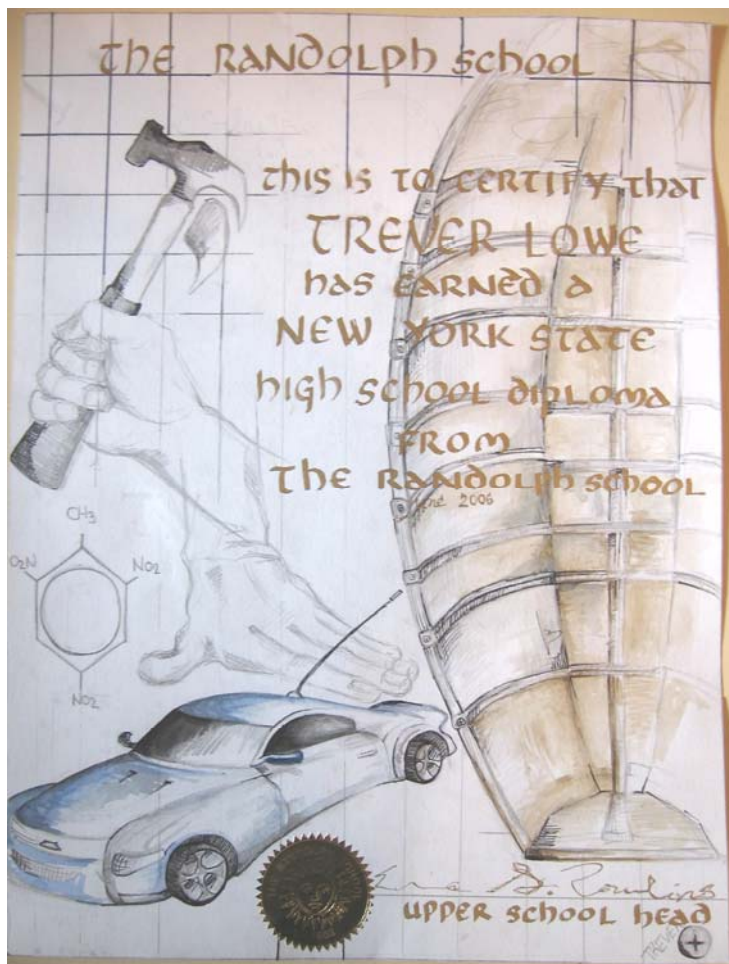 THE RANDOLPH SCHOOL
THIS IS TO CERTIFY THAT
TREVER LOWE
HAS EARNED A
NEW YORK STATE
HIGH SCHOOL DIPLOMA
FROM
THE RANDOLPH SCHOOL
2006
CH3
O2N
NO2
NO2
UPPER SCHOOL HEAD
TREVER